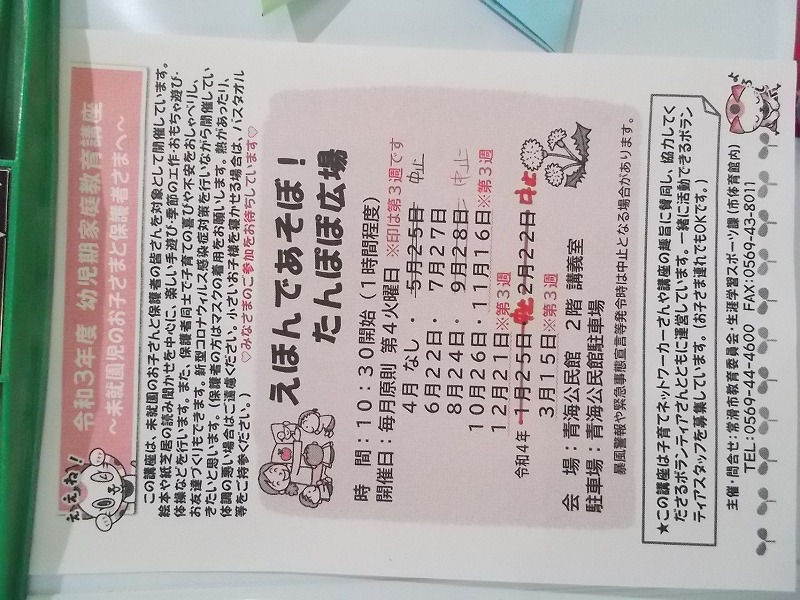 ええね!
令和3年度 幼児期家庭教育講座
～未就園児のお子さまと保護者さまへ～
この講座は、未就園のお子さんと保護者の皆さんを対象として開催しています。
絵本や紙芝居の読み聞かせを中心に、楽しい手遊び・季節の工作・おもちゃ遊び・
体操などを行います。また、保護者同士で子育ての喜びや不安をおしゃべりし、
お友達づくりもできます。新型コロナウィルス感染症対策を行いながら開催してい
きたいと思います。(保護者の方はマスクの着用をお願いします。熱があったり、
体調の悪い場合はご遠慮ください。小さいお子様を寝かせる場合は、バスタオル
等をご持参ください。) ♡みなさまのご参加をお待ちしています♡
えほんであそぼ!
たんぽぽ広場
時 間：10：30開始(1時間程度)
開催日：毎月原則 第4火曜日 ※印は第3週です
4月 なし・ 5月25日 中止
6月22日・ 7月27日
8月24日・ 9月28日 中止
10月26日・11月16日※第3週
12月21日※第3週
令和4年 1月25日 中止 2月22日 中止
3月15日※第3週
会 場：青海公民館 2階 講義室
駐車場：青海公民館駐車場
暴風警報や緊急事態宣言等発令時は中止となる場合があります。
★この講座は子育てネットワーカーさんや講座の趣旨に賛同し、協力してく
ださるボランティアさんとともに運営しています。一緒に活動できるボラン
ティアスタッフを募集しています。(お子さま連れでもOKです。)
主催・問合せ：常滑市教育委員会・生涯学習スポーツ課(市体育館内)
TEL：0569-44-4600 FAX：0569-43-8011